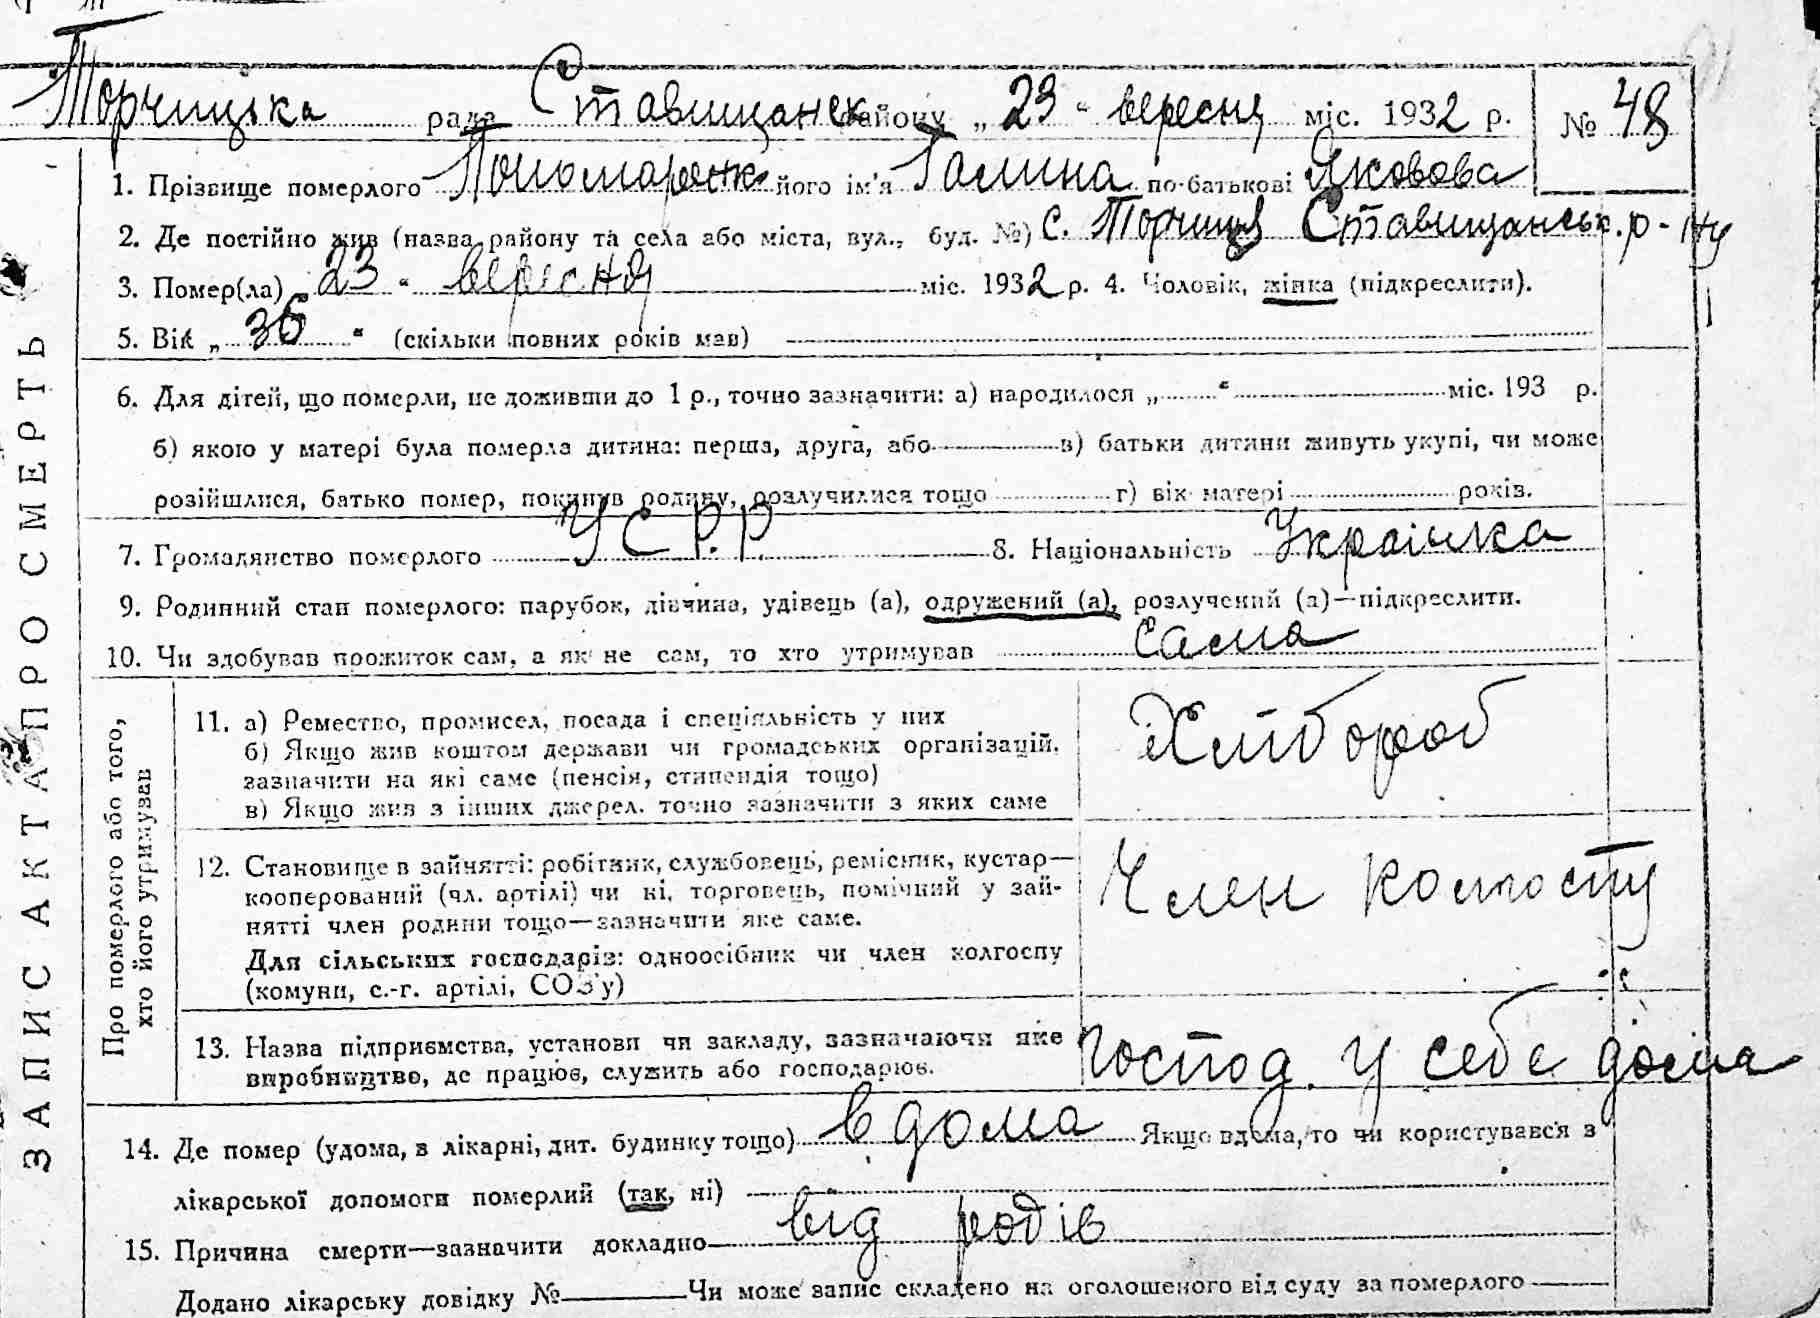 Торчицька рада Ставищанськ району „23“ вересня міс. 1932 р. № 48
1. Прізвище померлого Пономаренко його ім'я Галина по-батькові Яковова
2. Де постійно жив (назва району та села або міста, вул., буд. №) с. Торчиця Ставищанськ. р-ну
3. Помер(ла) 23 “ вересня міс. 1932 р. 4. Чоловік, жінка (підкреслити).
5. Вік „ 36 “ (скільки повних років мав)
6. Для дітей, що померли, не доживши до 1 р., точно зазначити: а) народилося „ “ міс. 193 р.
б) якою у матері була померла дитина: перша, друга, або в) батьки дитини живуть укупі, чи може
розійшлися, батько помер, покинув родину, розлучилися тощо г) вік матері років.
7. Громадянство померлого УСРР. 8. Національність Українка
9. Родинний стан померлого: парубок, дівчина, удівець (а), одружений (а), розлучений (а)—підкреслити.
10. Чи здобував прожиток сам, а як не сам, то хто утримував сама
ЗАПИС АКТА ПРО СМЕРТЬ
Про померлого або того,
хто його утримував
11. а) Ремество, промисел, посада і спеціяльність у них
б) Якщо жив коштом держави чи громадських організацій,
зазначити на які саме (пенсія, стипендія тощо)
в) Якщо жив з інших джерел. точно зазначити з яких саме
Хлібороб
12. Становище в зайнятті: робітник, службовець, ремісник, кустар—
кооперований (чл. артілі) чи ні, торговець, помічний у зай-
нятті член родини тощо—зазначити яке саме.
Для сільських господарів: одноосібник чи член колгоспу
(комуни, с.-г. артілі, СОЗ'у)
Член колгоспу
13. Назва підприємства, установи чи закладу, зазначаючи яке
виробництво, де працює, служить або господарює.
Господ. у себе дома
14. Де помер (удома, в лікарні, дит. будинку тощо) вдома Якщо вдома, то чи користувався з
лікарської допомоги померлий (так, ні)
15. Причина смерти—зазначити докладно від родів
Додано лікарську довідку № Чи може запис складено на оголошеного від суду за померлого